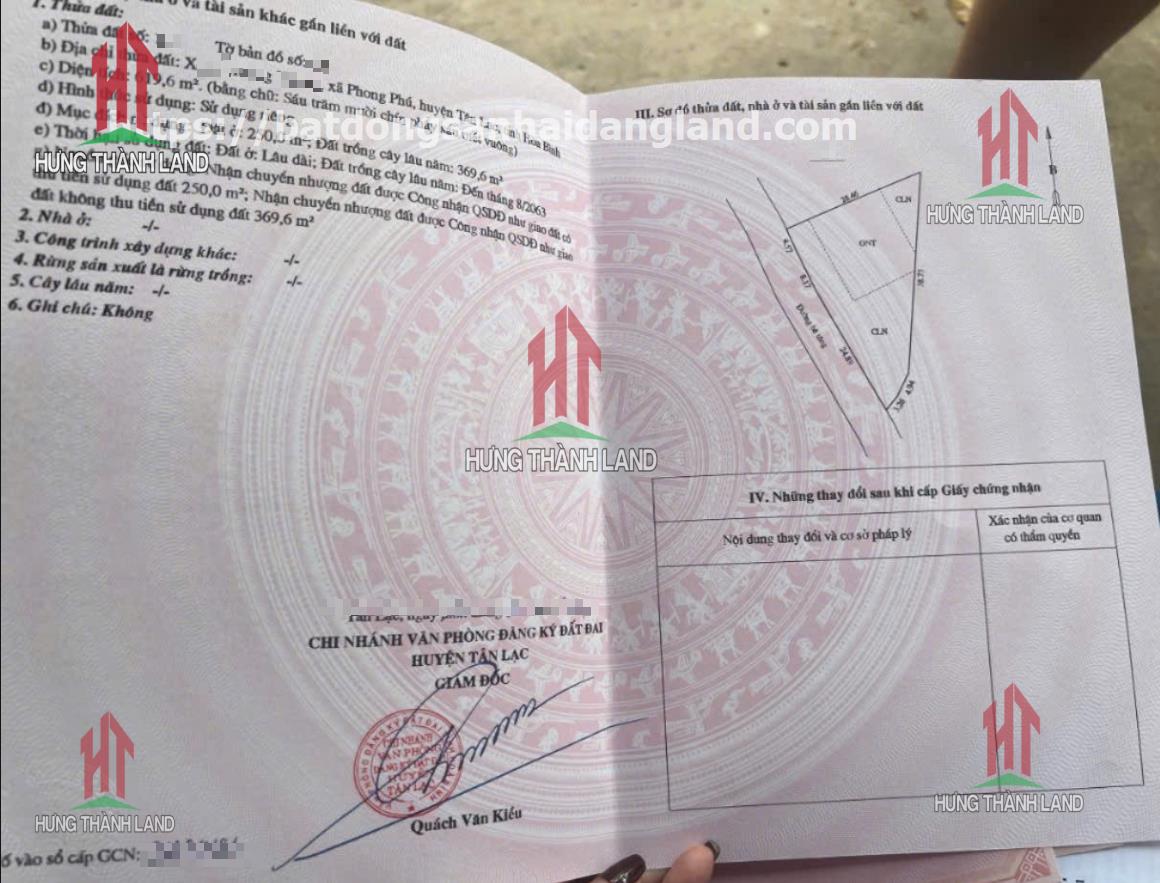 ở và tài sản khác gắn liền với đất
1. Thửa đất:
a) Thửa đất số: Tờ bản đồ số:
b) Địa chỉ thửa đất: X xã Phong Phú, huyện Tân Lạc, tỉnh Hòa Bình
c) Diện tích: 619,6 m². (bằng chữ: Sáu trăm mười chín phẩy sáu mét vuông)
d) Hình thức sử dụng: Sử dụng riêng
đ) Mục đích sử dụng: Đất ở: 250,0 m²; Đất trồng cây lâu năm: 369,6 m²
e) Thời hạn sử dụng đất: Đất ở: Lâu dài; Đất trồng cây lâu năm: Đến tháng 8/2063
Nhận chuyển nhượng đất được Công nhận QSDĐ như giao đất có
thu tiền sử dụng đất 250,0 m²; Nhận chuyển nhượng đất được Công nhận QSDĐ như giao
đất không thu tiền sử dụng đất 369,6 m²
2. Nhà ở: -/-
3. Công trình xây dựng khác: -/-
4. Rừng sản xuất là rừng trồng: -/-
5. Cây lâu năm: -/-
6. Ghi chú: Không
CHI NHÁNH VĂN PHÒNG ĐĂNG KÝ ĐẤT ĐAI
HUYỆN TÂN LẠC
GIÁM ĐỐC
CHI NHÁNH
VĂN PHÒNG
ĐĂNG KÝ ĐẤT ĐAI
HUYỆN
TÂN LẠC
Quách Văn Kiều
ố vào sổ cấp GCN:
III. Sơ đồ thửa đất, nhà ở và tài sản gắn liền với đất
B
CLN
ONT
CLN
4.57
8.37
24.89
4.94
Đường bê tông
IV. Những thay đổi sau khi cấp Giấy chứng nhận
Nội dung thay đổi và cơ sở pháp lý
Xác nhận của cơ quan
có thẩm quyền
https://batdongsanhaidangland.com
HƯNG THÀNH LAND
HƯNG THÀNH LAND
HƯNG THÀNH LAND
HƯNG THÀNH LAND
HƯNG THÀNH LAND